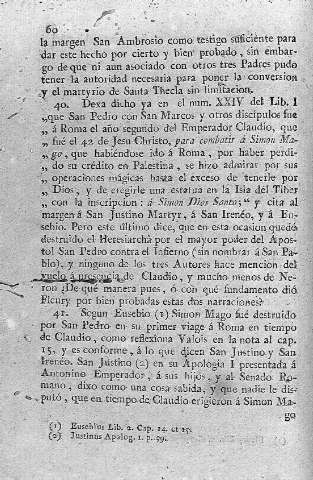 60
la margen San Ambrosio como testigo suficiente para
dar este hecho por cierto y bien probado, sin embar-
go de que ni aun asociado con otros tres Padres pudo
tener la autoridad necesaria para poner la conversion
„ y el martyrio de Santa Thecla sin limitacion.
40. Dexa dicho ya en el num. XXIV del Lib. I
„ que San Pedro con San Marcos y otros discipulos fue
„ á Roma el año segundo del Emperador Claudio, que
„ fué el 42 de Jesu Christo, para combatir á Simon Ma-
„ go, que habiéndose ido á Roma, por haber perdi-
„ do su crédito en Palestina, se hizo admirar por sus
„ operaciones mágicas hasta el exceso de tenerle por
„ Dios, y de eregirle una estatua en la Isla del Tiber
„ con la inscripcion: á Simon Dios Santo; " y cita al
margen á San Justino Martyr, á San Irenéo, y á Eu-
sebio. Pero este último dice, que en esta ocasion quedó
destruido el Heresiarchâ por el mayor poder del Apos-
tol San Pedro contra el Infierno (sin nombrar á San Pa-
blo), y ninguno de los tres Autores hace mencion del
vuelo á presencia de Claudio, y mucho menos de Ne-
ron ¿De qué manera pues, ó con qué fundamento dió
Fleury por bien probadas estas dos narraciones?
41. Segun Eusebio (1) Simon Mago fué destruido
por San Pedro en su primer viage á Roma en tiempo
de Claudio, como reflexiona Valois en la nota al cap.
15, y es conforme, á lo que dicen San Justino y San
Irenéo. San Justino (2) en su Apologia I presentada á
Antonino Emperador, á sus hijos, y al Senado Ro-
mano, dixo como una cosa sabida, y que nadie le dis-
putó, que en tiempo de Claudio erigieron á Simon Ma-
go
(1) Eusebius Lib. 2. Cap. 14. et 15.
(2) Justinus Apolog. 1. p. 59.